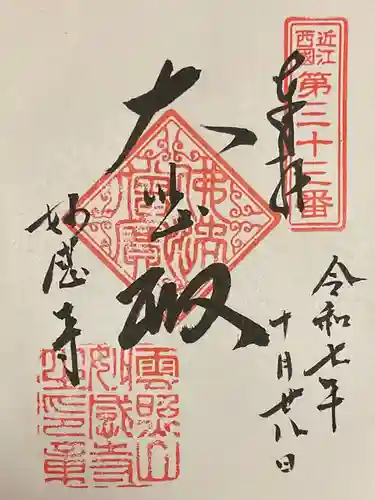 近江
西国
第三十三番
奉拝
大悲殿
妙感寺
令和七年
十月廿八日
雲照山
妙感寺